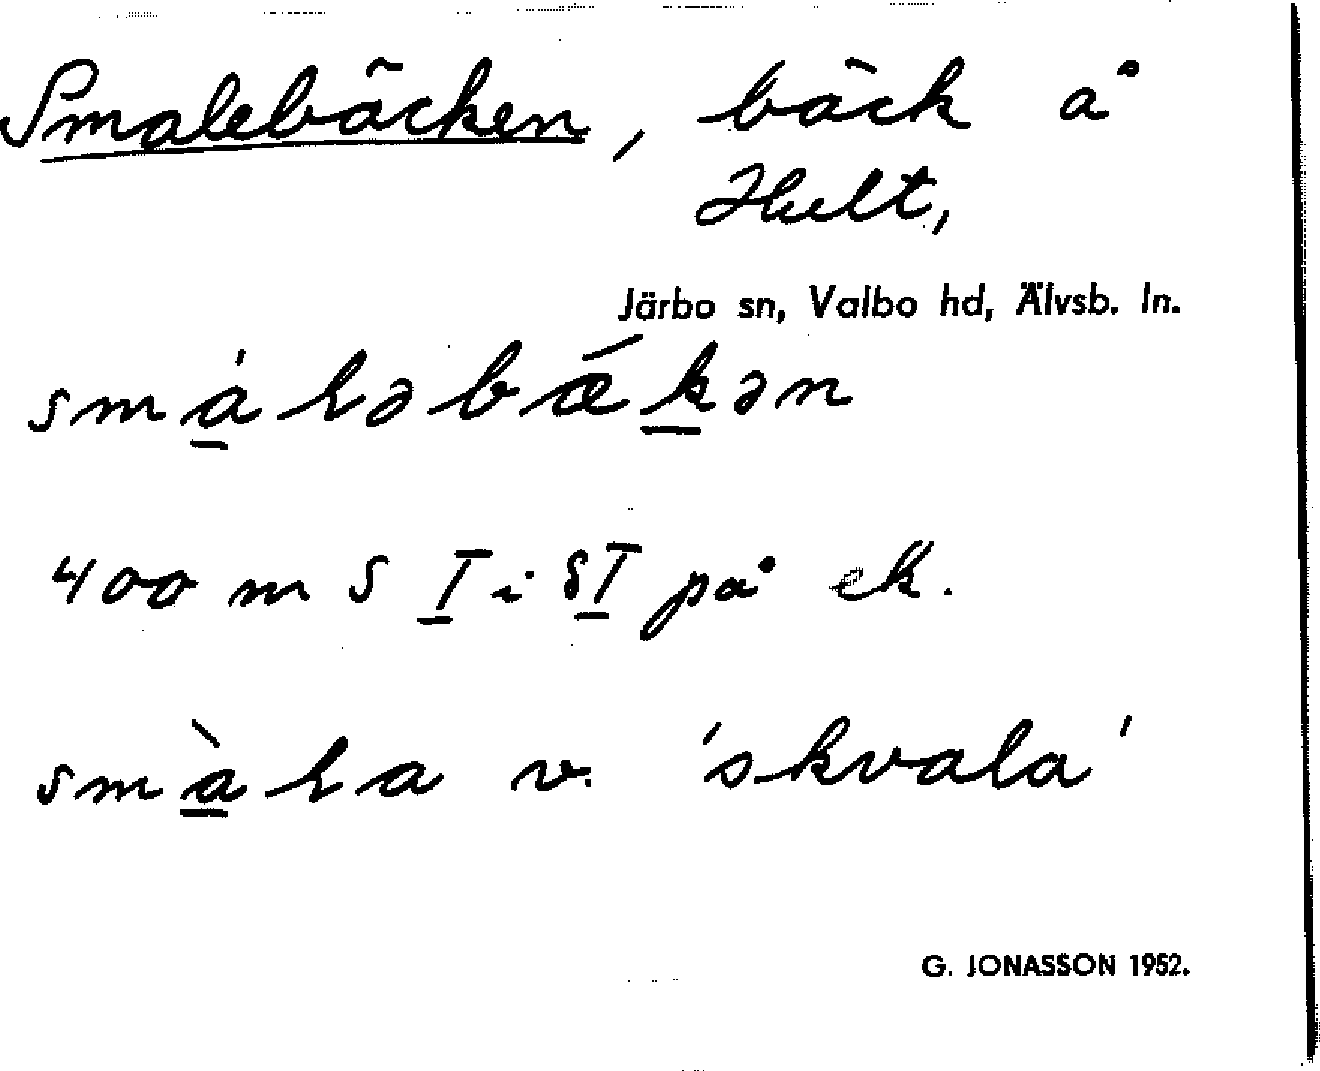 Smalebäcken, bäck å
Hult,
Järbo sn, Valbo hd, Älvsb. ln.
smáləbǽkən
400 m S I i SI på ek.
smàla v. 'skvala'
G. JONASSON 1952.